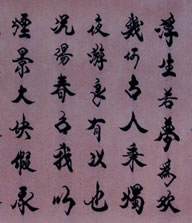 浮生若夢為欢
幾何古人秉燭
夜游良有以也
况陽春召我以
煙景大块假我